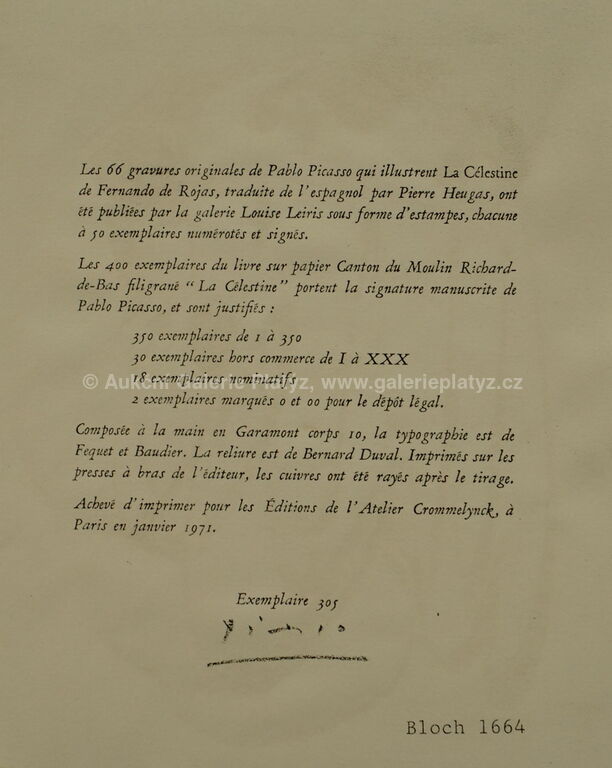 Les 66 gravures originales de Pablo Picasso qui illustrent La Célestine
de Fernando de Rojas, traduite de l'espagnol par Pierre Heugas, ont
été publiées par la galerie Louise Leiris sous forme d'estampes, chacune
à 50 exemplaires numérotés et signés.
Les 400 exemplaires du livre sur papier Canton du Moulin Richard-
de-Bas filigrané “La Célestine” portent la signature manuscrite de
Pablo Picasso, et sont justifiés :
350 exemplaires de 1 à 350
30 exemplaires hors commerce de I à XXX
18 exemplaires nominatifs
© Aukční Galerie Platýz, www.galerieplatyz.cz
2 exemplaires marqués 0 et 00 pour le dépôt légal.
Composée à la main en Garamont corps 10, la typographie est de
Fequet et Baudier. La reliure est de Bernard Duval. Imprimés sur les
presses à bras de l'éditeur, les cuivres ont été rayés après le tirage.
Achevé d'imprimer pour les Éditions de l'Atelier Crommelynck, à
Paris en janvier 1971.
Exemplaire 305
Picasso
Bloch 1664